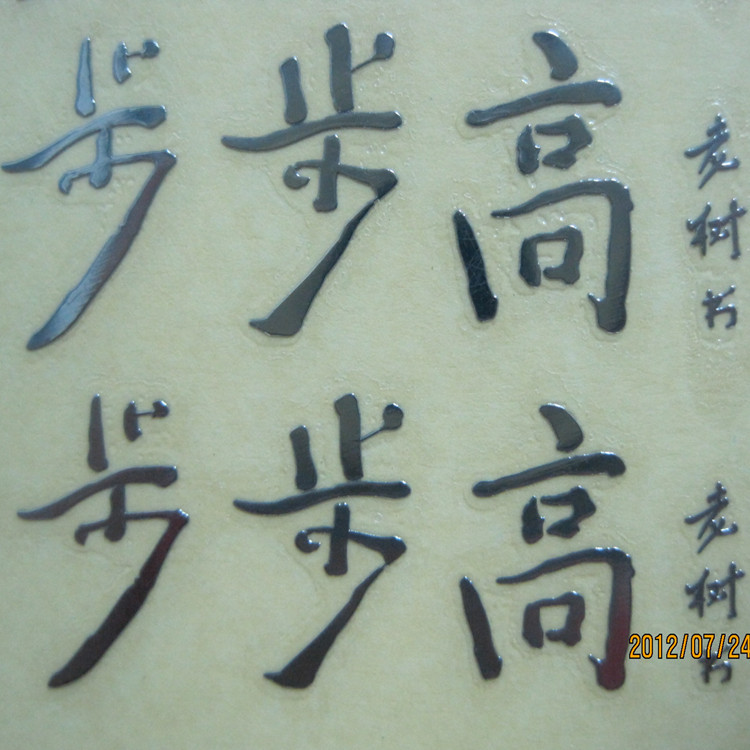 步步高
袁树书
步步高
袁树书
2012/07/24